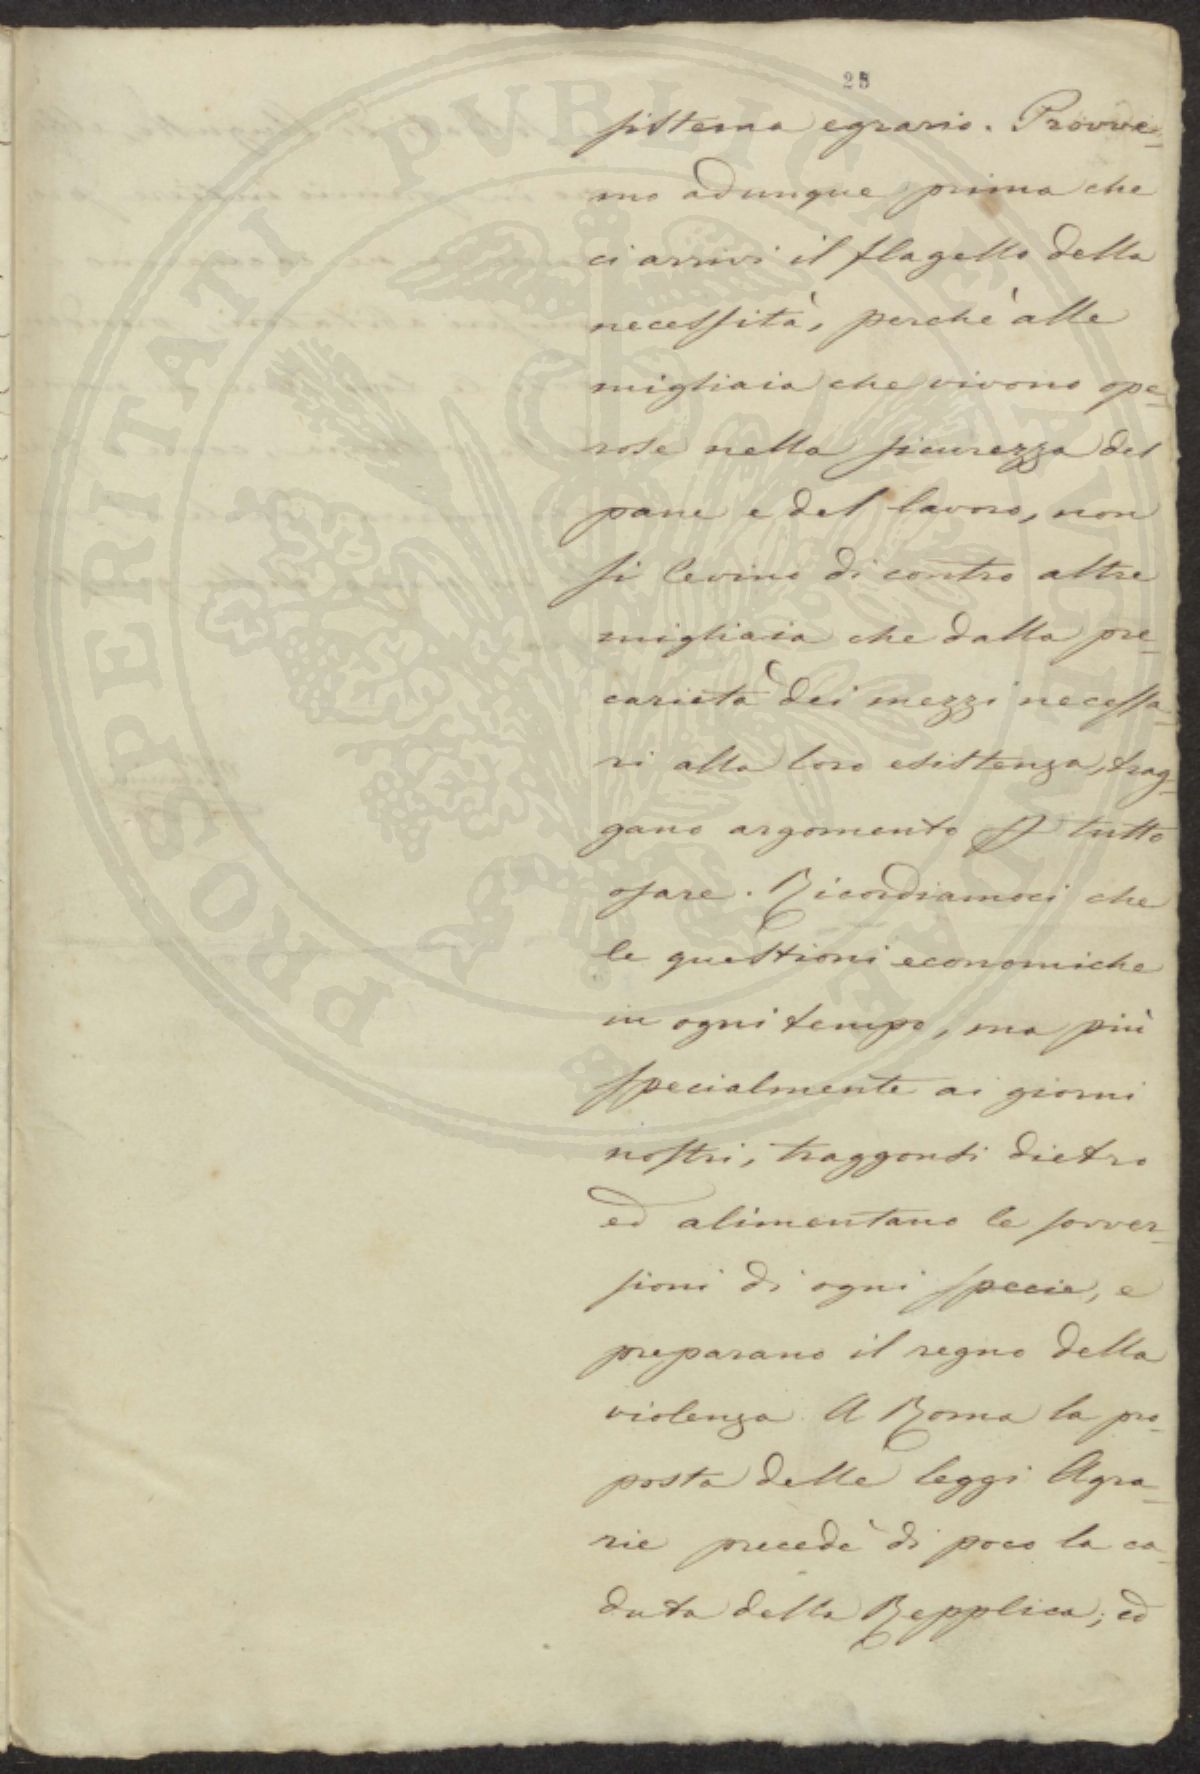 25
sistema agrario. Provve-
mo adunque prima che
ci arrivi il flagello della
necessità, perchè alle
migliaia che vivono ope-
rose nella sicurezza del
pane e del lavoro, non
si levino di contro altre
migliaia che dalla pre-
carietà dei mezzi necessa-
ri alla loro esistenza, trag-
gano argomento a tutto
osare. Ricordiamoci che
le questioni economiche
in ogni tempo, ma più
specialmente ai giorni
nostri, traggonsi dietro
ed alimentano le sovver-
sioni di ogni specie, e
preparano il regno della
violenza. A Roma la pro-
posta delle leggi Agra-
rie precedè di poco la ca-
duta della Repplica; ed
PROSPERITATI PVBLICAE AVGENDAE